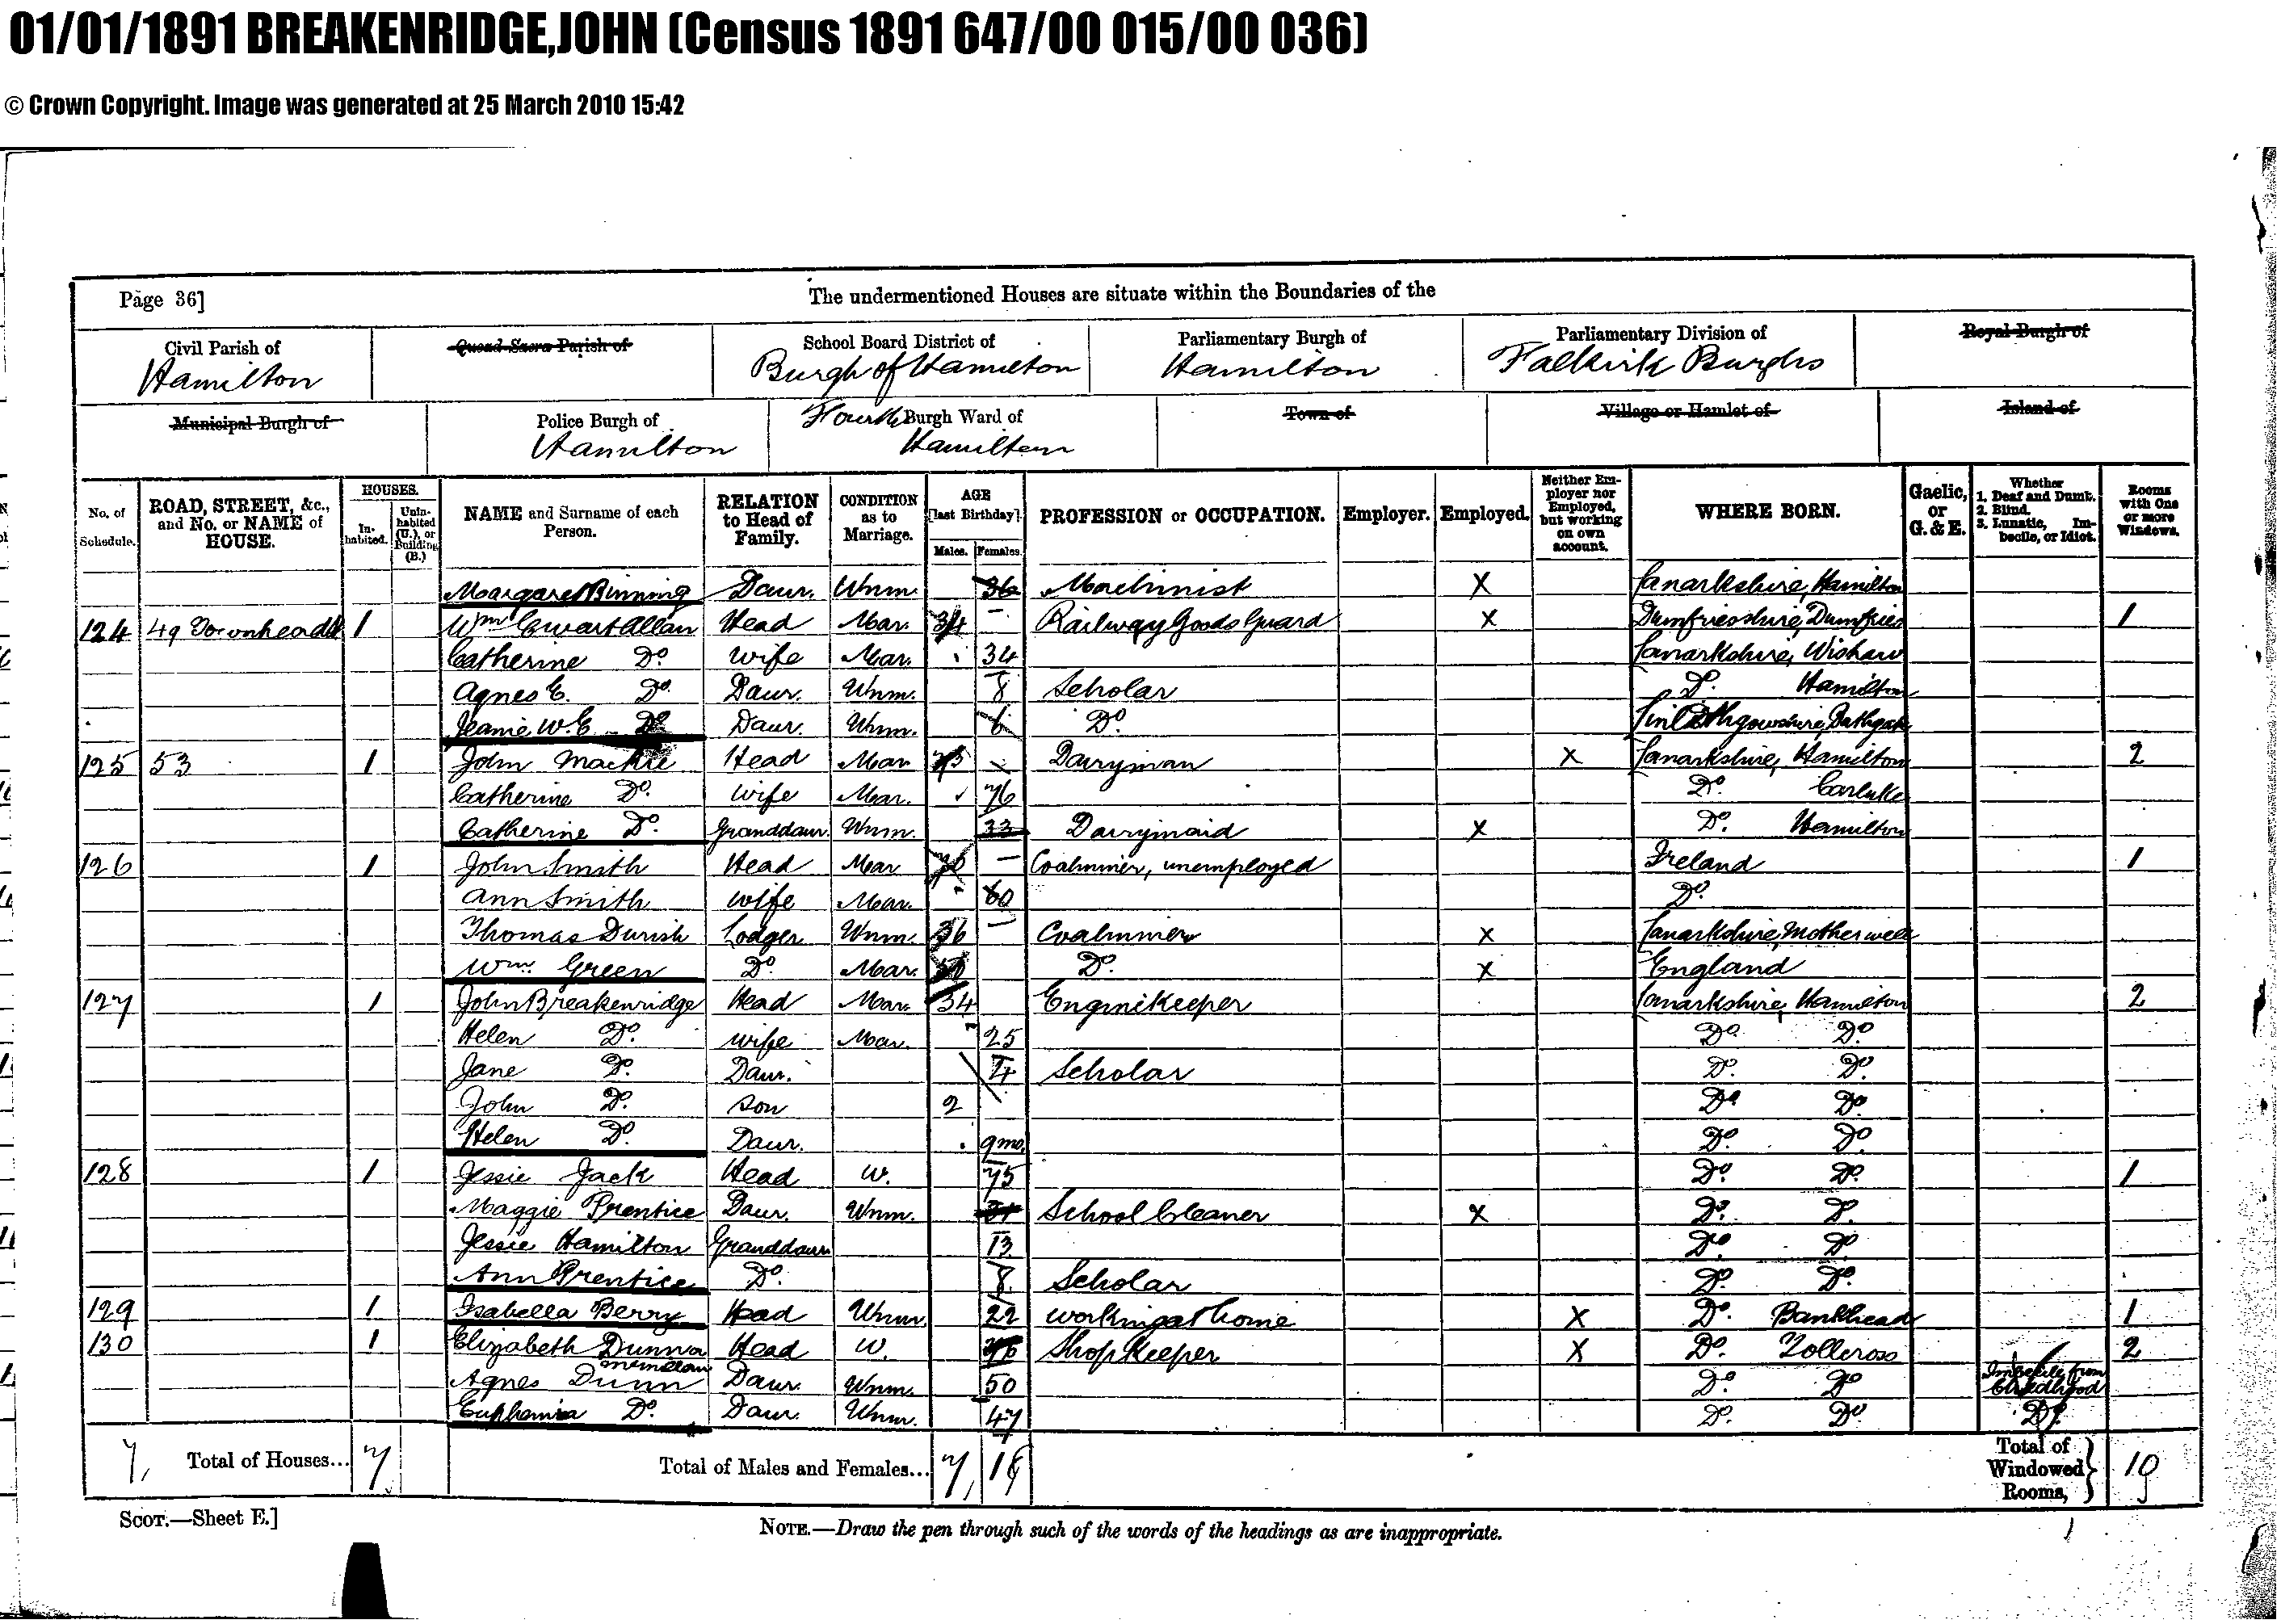 01/01/1891 BREAKENRIDGE,JOHN (Census 1891 647/00 015/00 036)
© Crown Copyright. Image was generated at 25 March 2010 15:42
Page 36] The undermentioned Houses are situate within the Boundaries of the
Civil Parish of Hamilton
Quoad Sacra Parish of
School Board District of Burgh of Hamilton
Parliamentary Burgh of Hamilton
Parliamentary Division of Falkirk Burghs
Royal Burgh of
Municipal Burgh of
Police Burgh of Hamilton
Fourth Burgh Ward of Hamilton
Town of
Village or Hamlet of
Island of
No. of Schedule.
ROAD, STREET, &c., and No. or NAME of HOUSE.
HOUSES.
In-habited.
Unin-habited (U.), or Building (B.)
NAME and Surname of each Person.
RELATION to Head of Family.
CONDITION as to Marriage.
AGE [last Birthday].
Males. Females.
PROFESSION or OCCUPATION.
Employer.
Employed.
Neither Em-ployer nor Employed, but working on own account.
WHERE BORN.
Gaelic, or G. & E.
Whether 1. Deaf and Dumb. 2. Blind. 3. Lunatic, Im-becile, or Idiot.
Rooms with One or more Windows.
Margaret Binning Daur. Unm. 36 Machinist X Lanarkshire, Hamilton
124 49 Townhead St 1 Wm Ewart Allan Head Mar. 34 – Railway Goods Guard X Dumfriesshire, Dumfries 1
Catherine Do. Wife Mar. 34 Lanarkshire, Wishaw
Agnes E. Do. Daur. Unm. 8 Scholar Do. Hamilton
Jeanie W. E. Do Daur. Unm. 6 Do. Linlithgowshire, Bathgate
125 53 1 John Mackie Head Mar 75 Dairyman X Lanarkshire, Hamilton 2
Catherine Do. Wife Mar. 76 Do. Carluke
Catherine Do. Granddaur. Unm. 33 Dairymaid X Do. Hamilton
126 1 John Smith Head Mar – Coalminer, unemployed Ireland 1
Ann Smith Wife Mar. 60 Do.
Thomas Lodger Unm. 36 Coalminer X Lanarkshire, Motherwell
Wm. Green Do. Mar. Do. X England
127 1 John Breakenridge Head Mar. 34 Enginekeeper Lanarkshire, Hamilton 2
Helen Do. Wife Mar. 25 Do. Do.
Jane Do. Daur. 4 Scholar Do. Do.
John Do. Son 2 Do. Do.
Helen Do. Daur. 9 mo. Do. Do.
128 1 Jessie Jack Head W. 75 Do. Do. 1
Maggie Prentice Daur. Unm. School Cleaner X Do. Do.
Jessie Hamilton Granddaur 13 Do. Do.
Ann Prentice Do. 8 Scholar Do. Do.
129 1 Isabella Berry Head Unm. 22 working at home X Do. Bankhead 1
130 1 Elizabeth Head W. Shopkeeper X Do. Tollcross 2
Agnes Dunn Daur. Unm. 50 Do. Do Imbecile from Childhood
Euphemia Do. Daur. Unm. 47 Do. Do. Do.
7, Total of Houses... 7 Total of Males and Females... 7, 18 Total of Windowed Rooms, 10
SCOT.—Sheet E.]
NOTE.—Draw the pen through such of the words of the headings as are inappropriate.